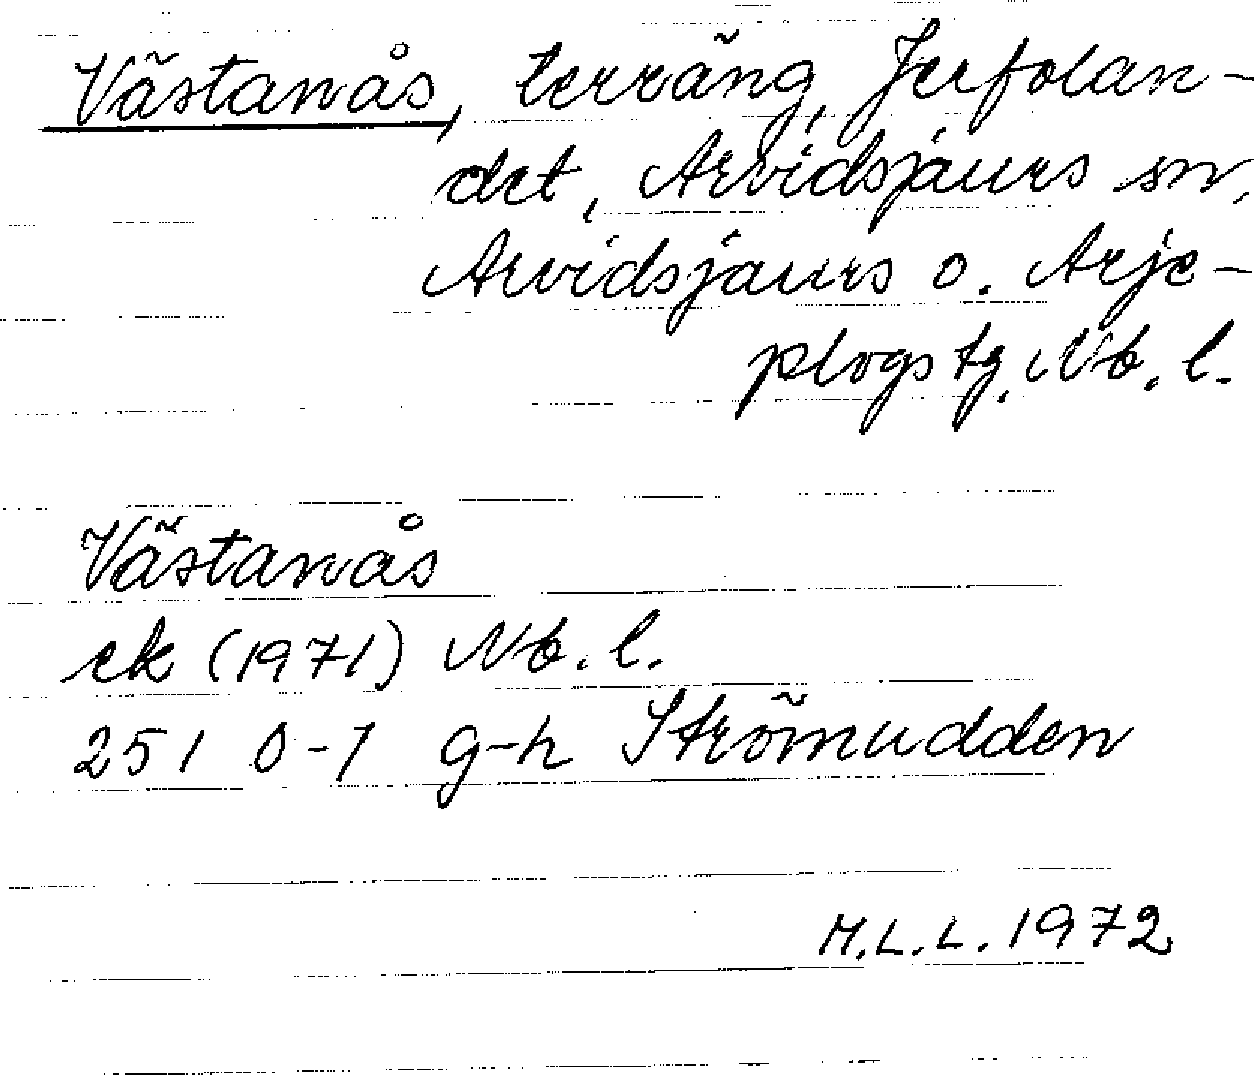 Västanås, terräng, Jerfolan-
det, Arvidsjaurs sn,
Arvidsjaurs o. Arje-
plogs tg, Nb. l.
Västanås
ek (1971) Nb. l.
251 0-1 g-h Strömudden
M.L.L. 1972